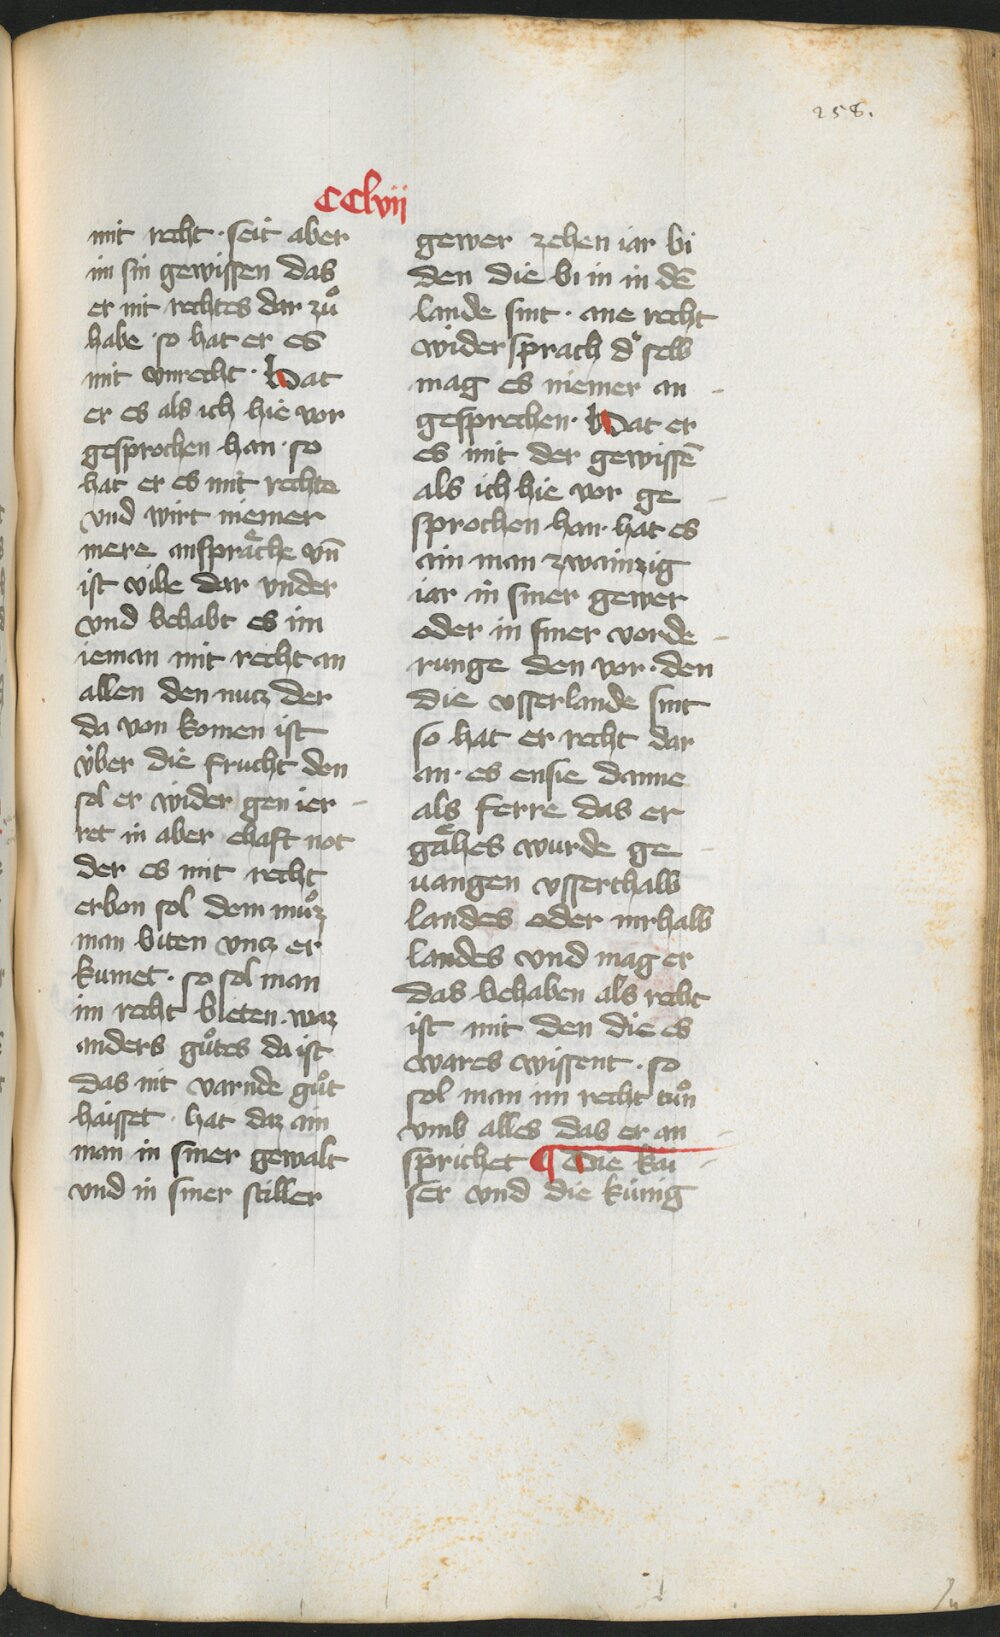 258.
CClvij
mit recht · seit aber
im sin gewissen das
er nit rechtes dar zuͦ
habe · so hat er es
mit vnrecht · Hat
er es als ich hie vor
gesprochen han · so
hat er es mit rechte
vnd wirt niemer
mere anspraͤche vn̄
ist vihe dar vnder
vnd behabt es im
ieman mit recht an
allen den nucz der
da von komen ist
v́ber die frucht den
sol er wider gen ier -
ret in aber ehaft not
der es mit recht
erben sol dem muͦz
man biten vncz er
kumet · so sol man
im recht bieten · waz
anders guͦtes da ist
das nit varnde guͦt
haisset · hat daz ain
man in siner gewalt
vnd in siner stiller
gewer zehen iar bi
den die bi in in dē
lande sint · ane recht
wider sprach d' selb
mag es niemer an -
gesprechen · Hat er
es mit der gewissē
als ich hie vor ge -
sprochen han · hat es
ain man zwainzig
iar in siner gewer
oder in siner vorde -
runge den vor · den
die vsserlande sint
so hat er recht dar
an · es ensie danne
als ferre das er
gaͤhes wurde ge -
uangen vsserthalb
landes oder inrhalb
landes vnd mag er
das behaben als recht
ist mit den die es
wares wissent · so
sol man im recht tuͦn
vmb alles das er an -
sprichet ¶ Die kai -
ser vnd die kúnig